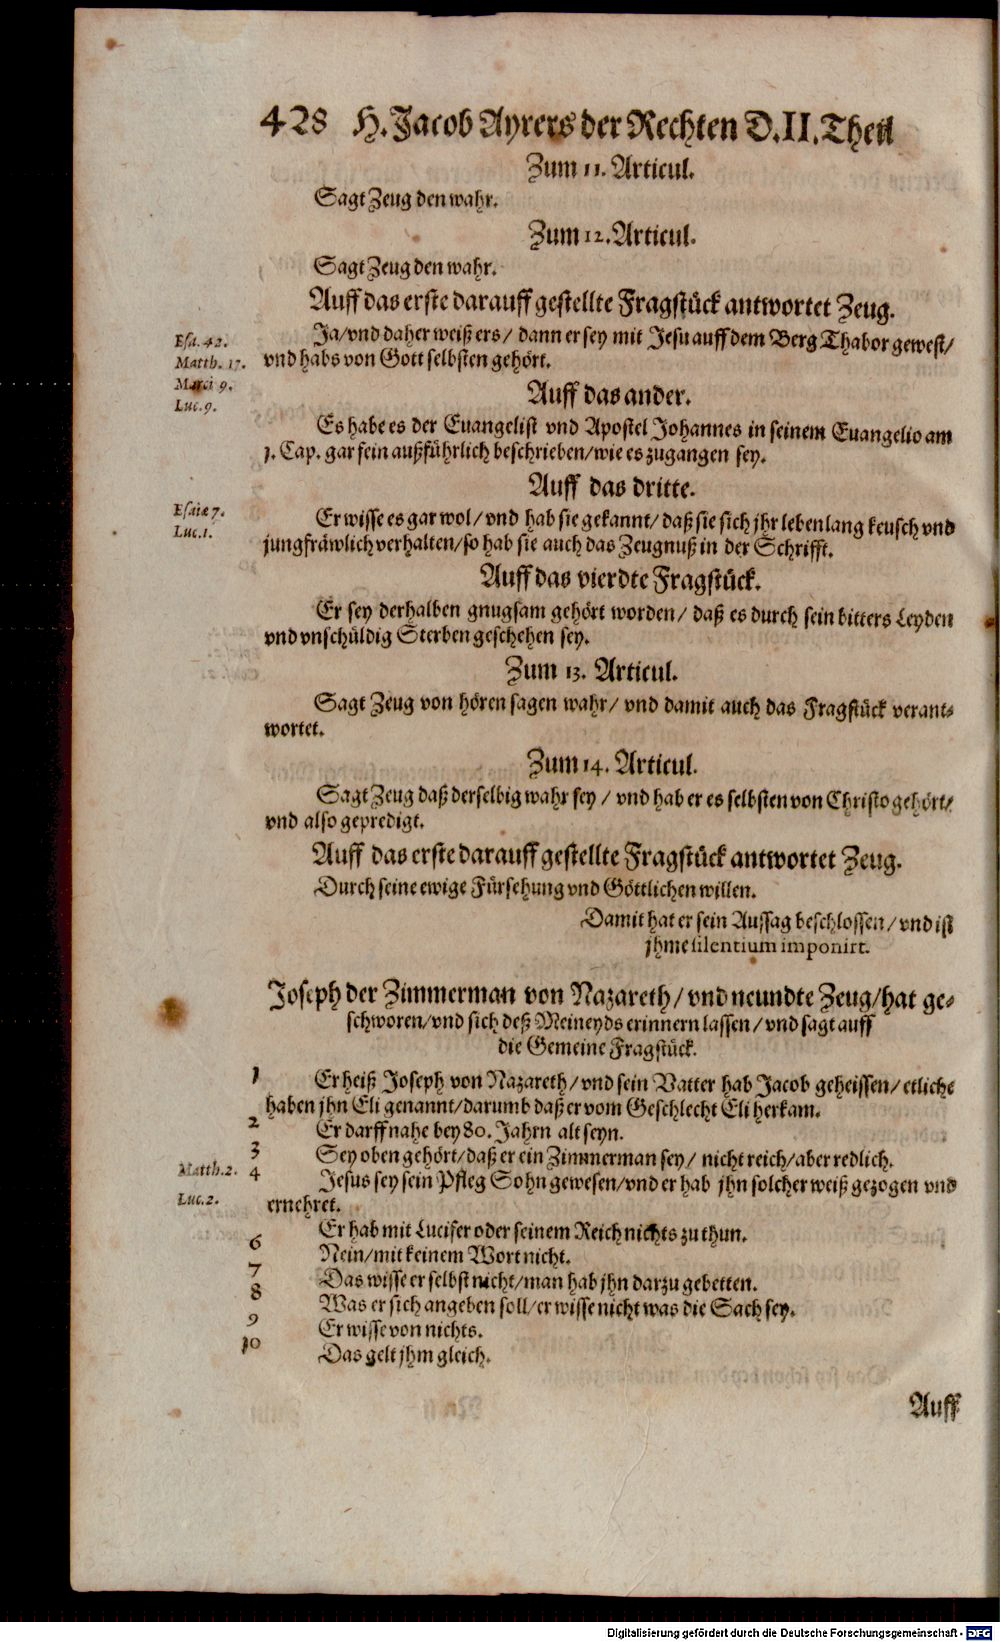 428 H. Jacob Ayrers der Rechten D. II. Theil
Zum 11. Articul.
Sagt Zeug den wahr.
Zum 12. Articul.
Sagt Zeug den wahr.
Auff das erste darauff gestellte Fragstück antwortet Zeug.
Esa. 42.
Matth. 17.
Marci 9.
Luc. 9.
Ja/ vnd daher weiß ers/ dann er sey mit Jesu auff dem Berg Thabor gewest/
vnd habs von Gott selbsten gehört.
Auff das ander.
Es habe es der Euangelist vnd Apostel Johannes in seinem Euangelio am
1. Cap. gar fein außführlich beschrieben/ wie es zugangen sey.
Auff das dritte.
Esaiæ 7.
Luc. 1.
Er wisse es gar wol/ vnd hab sie gekannt/ daß sie sich jhr lebenlang keusch vnd
jungfräwlich verhalten/ so hab sie auch das Zeugnuß in der Schrifft.
Auff das vierdte Fragstück.
Er sey derhalben gnugsam gehört worden/ daß es durch sein bitters Leyden
vnd vnschüldig Sterben geschehen sey.
Zum 13. Articul.
Sagt Zeug von hören sagen wahr/ vnd damit auch das Fragstück verant-
wortet.
Zum 14. Articul.
Sagt Zeug daß derselbig wahr sey/ vnd hab er es selbsten von Christo gehört/
vnd also gepredigt.
Auff das erste darauff gestellte Fragstück antwortet Zeug.
Durch seine ewige Fürsehung vnd Göttlichen willen.
Damit hat er sein Aussag beschlossen/ vnd ist
jhme silentium imponirt.
Joseph der Zimmerman von Nazareth/ vnd neundte Zeug/ hat ge-
schworen/ vnd sich deß Meineyds erinnern lassen/ vnd sagt auff
die Gemeine Fragstück.
1 Er heiß Joseph von Nazareth/ vnd sein Vatter hab Jacob geheissen/ etliche
haben jhn Eli genannt/ darumb daß er vom Geschlecht Eli herkam.
2 Er darff nahe bey 80. Jahrn alt seyn.
3 Sey oben gehört/ daß er ein Zimmerman sey/ nicht reich/ aber redlich.
Matth. 2.
Luc. 2.
4 Jesus sey sein Pfleg Sohn gewesen/ vnd er hab jhn solcher weiß gezogen vnd
ernehret.
Er hab mit Lucifer oder seinem Reich nichts zu thun.
6 Nein/ mit keinem Wort nicht.
7 Das wisse er selbst nicht/ man hab jhn darzu gebetten.
8 Was er sich angeben soll/ er wisse nicht was die Sach sey.
9 Er wisse von nichts.
10 Das gelt jhm gleich.
Auff
Digitalisierung gefördert durch die Deutsche Forschungsgemeinschaft - DFG